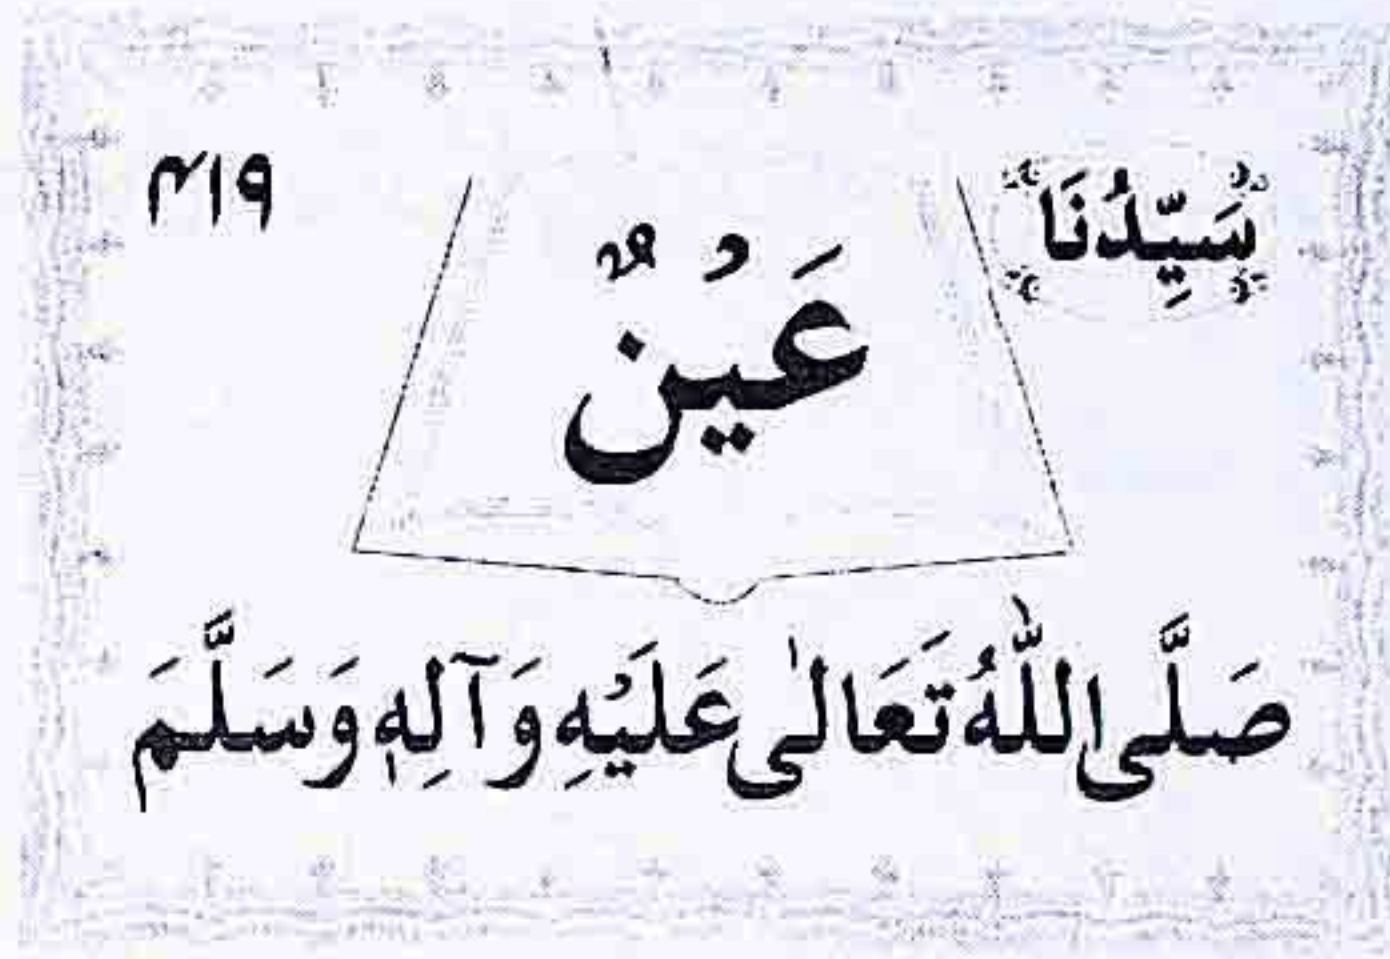 سَيِّدُنَا
۴۱۹
عَيْنٌ
صَلَّى اللّٰهُ تَعَالٰى عَلَيْهِ وَآلِهٖ وَسَلَّمَ